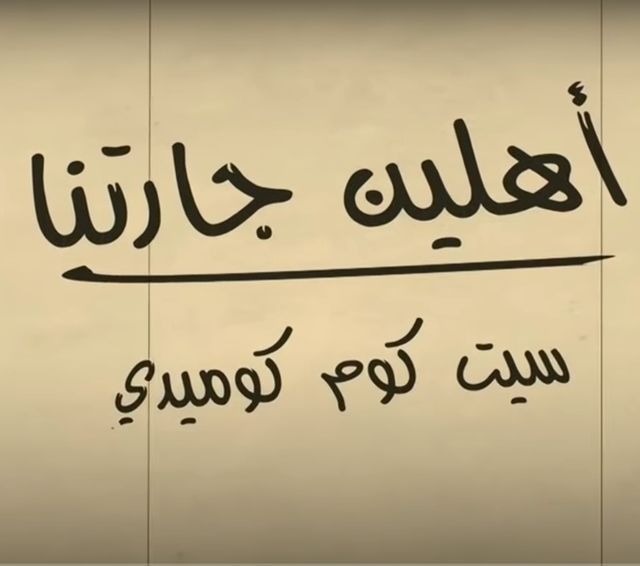 أهلين جارتنا
سيت كوم كوميدي